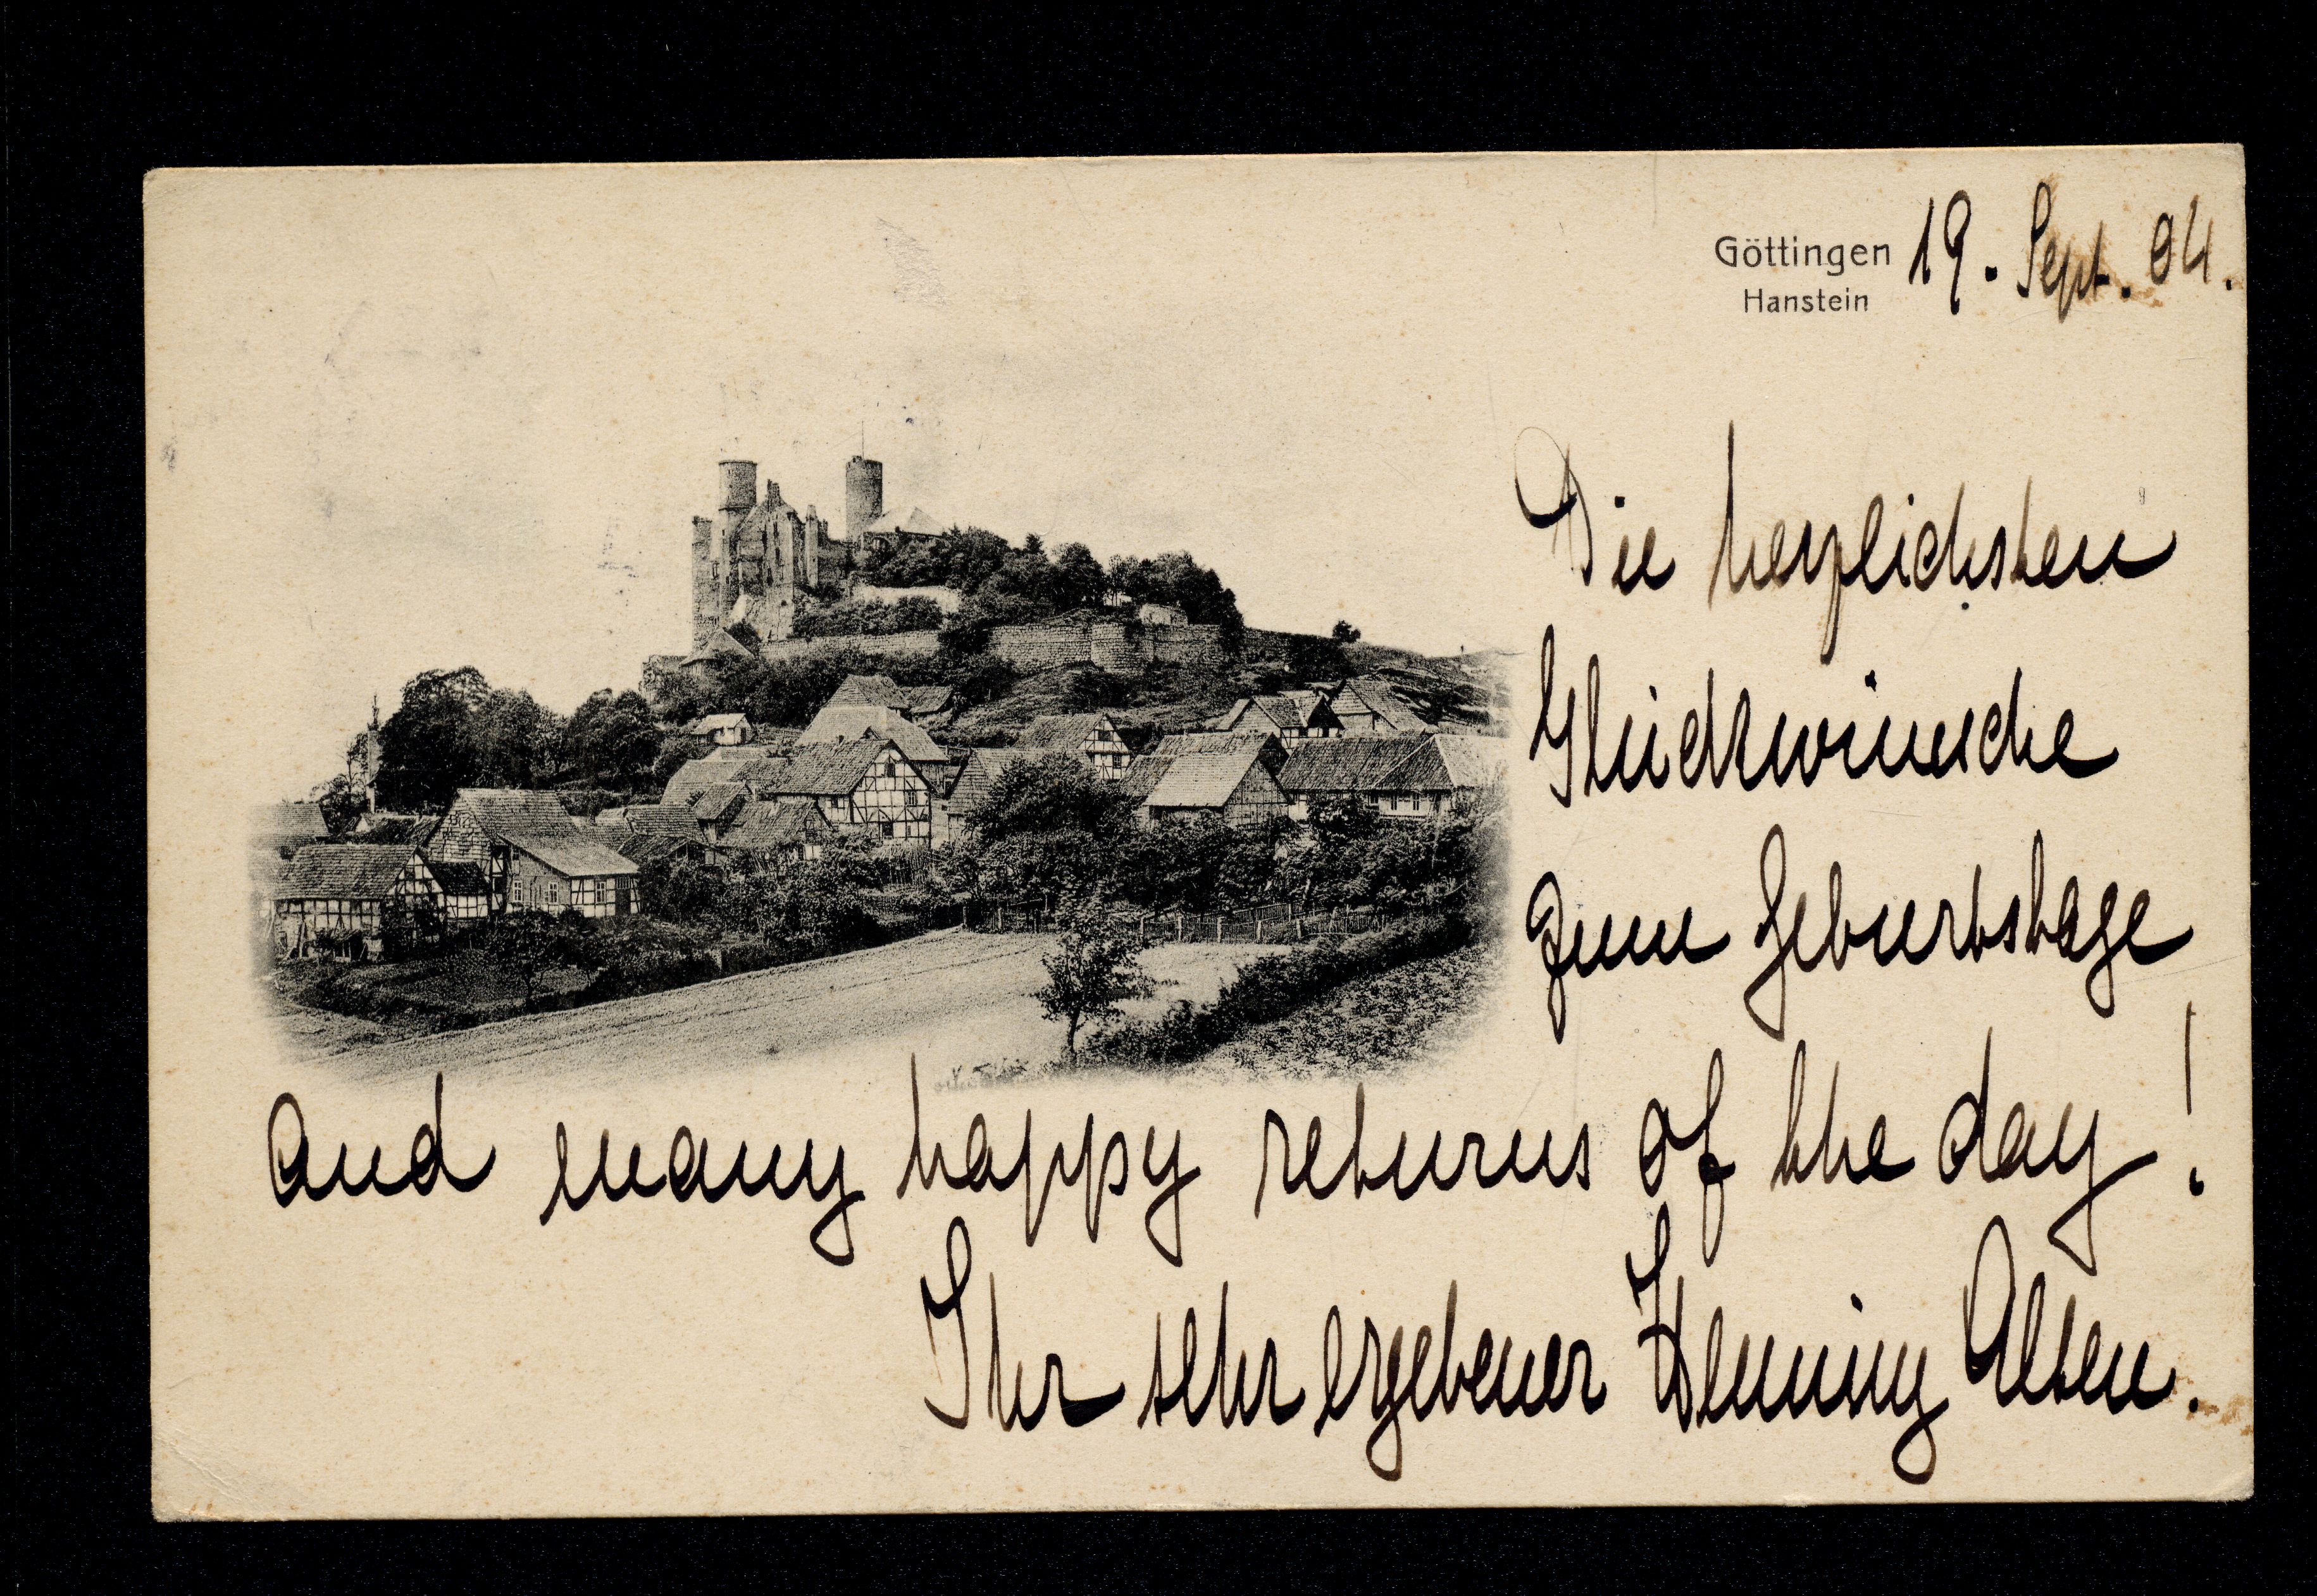 Göttingen 19. Sept. 04.
Hanstein
Die herzlichsten
Glückwünsche
zum Geburtstage
and many happy returns of the day!
Ihr sehr ergebener Henning Alten.